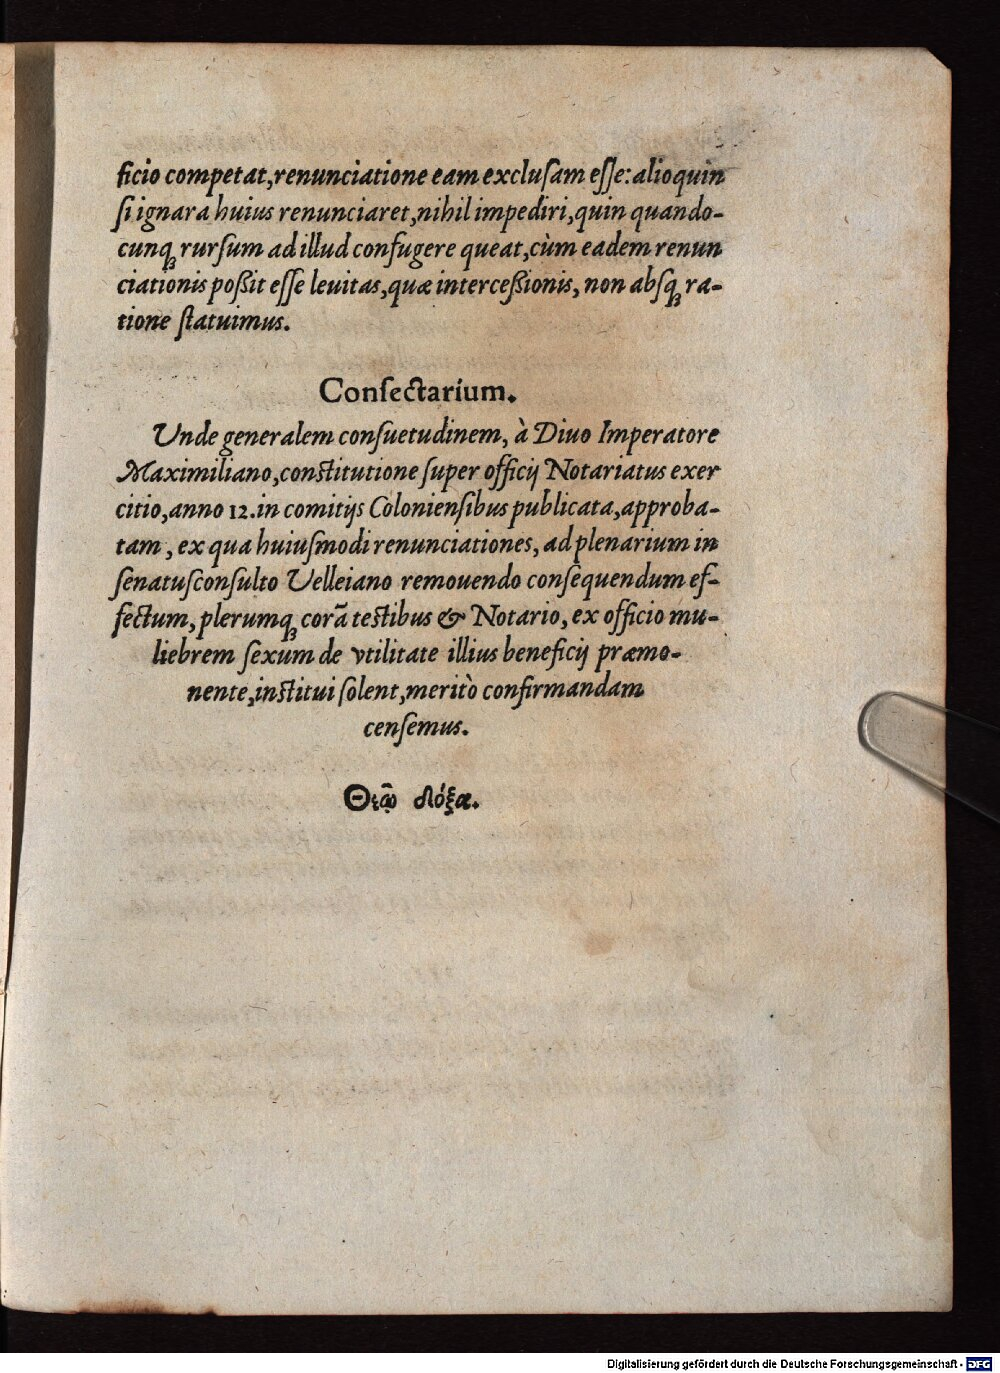 ficio competat,renunciatione eam excluſam eſſe: alioquin
ſi ignara huius renunciaret,nihil impediri,quin quando-
cunqꝫ rurſum ad illud confugere queat,cùm eadem renun
ciationis poßit eſſe leuitas,quæ interceßionis, non abſqꝫ ra-
tione ſtatuimus.
Conſectarium.
Unde generalem conſuetudinem, à Diuo Imperatore
Maximiliano,conſtitutione ſuper officij Notariatus exer
citio,anno 12.in comitijs Colonienſibus publicata,approba-
tam, ex qua huiuſmodi renunciationes, ad plenarium in
ſenatuſconſulto Velleiano remouendo conſequendum ef-
fectum,plerumqꝫ corã teſtibus & Notario, ex officio mu-
liebrem ſexum de vtilitate illius beneficij præmo-
nente,inſtitui ſolent,meritò confirmandam
cenſemus.
Θεῷ δόξα.
Digitalisierung gefördert durch die Deutsche Forschungsgemeinschaft - DFG